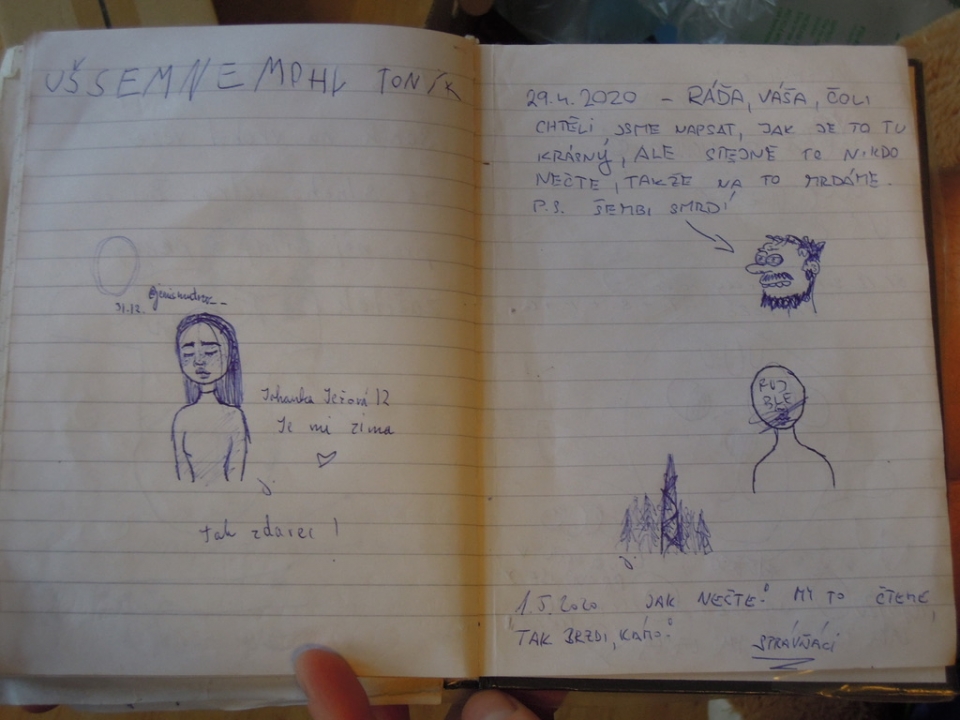 TONÍK
31.12.
Johanka Ježová 12
Je mi zima
tak zdarec !
29.4.2020 - RÁĎA, VÁŠA, ČOLI
CHTĚLI JSME NAPSAT, JAK JE TO TU
KRÁSNÝ, ALE STEJNĚ TO NIKDO
NEČTE, TAKŽE NA TO MRDÁME.
P.S. ŠEMBI SMRDÍ
1.5.2020 JAK NEČTE? MY TO ČTEME,
TAK BRZDI, KÁMO!
SPRÁVŇÁCI